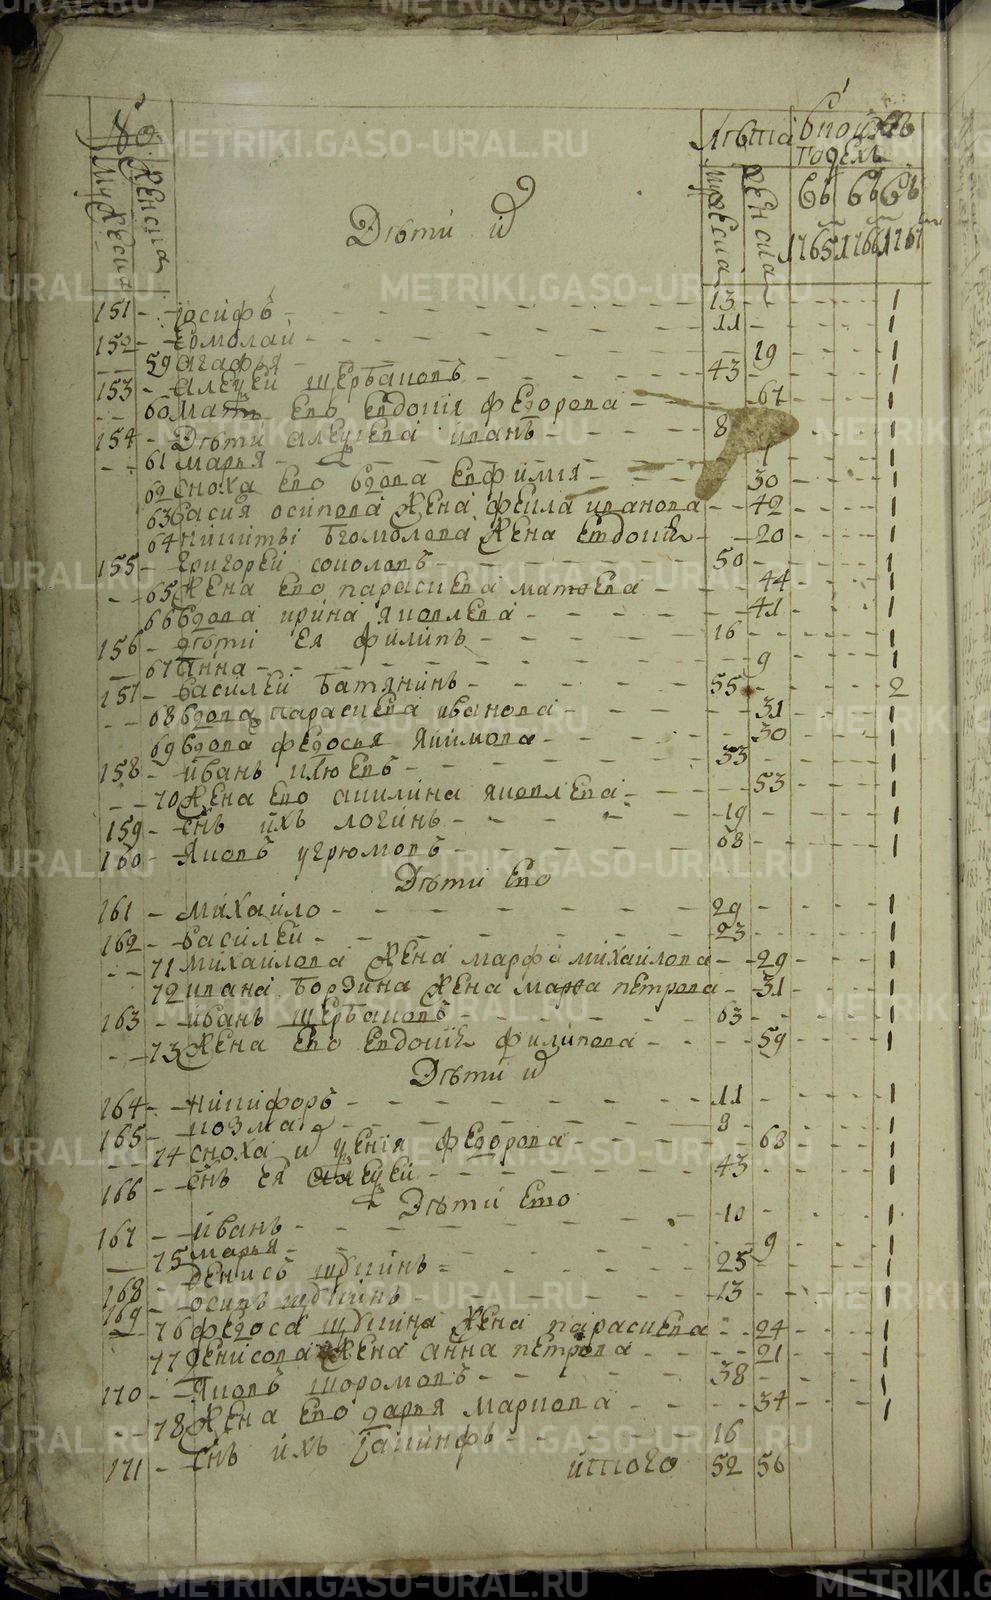 №
Мужеска
Женска
Лѣта
Мужеска
Женска
въ коихъ годехъ
въ 1765м
въ 1766м
въ 1767м
Дѣти и͡х
151 - Іосифъ - 13 - 1
152 - Ермолай - 11 - 1
59 Агафья - 19 - 1
153 - Алеѯей Щербаковъ - 43 - 1
60 Мать ево Евдокия Федорова - 67 - 1
154 - Дѣти Алеѯеева Иванъ - 8 - 1
61 Марья - 1
62 Сноха ево вдова Евфимия - 30 - 1
63 Васия Осипова жена Фекла Иванова - 42 - 1
64 Никиты Богомолова жена Евдокия - 20 - 1
155 - Григорей Соколовъ - 50 - 1
65 Жена ево Парасковья Матвева - 44 - 1
66 Вдова Ирина Яковлева - 41 - 1
156 - Дѣти ея Филипъ - 16 - 1
67 Анна - 9 - 1
157 - Василей Батянинъ - 55 - 2
68 Вдова Парасковья Иванова - 31 - 1
69 Вдова Федосья Якимова - 30 - 1
158 - Иванъ Клюевъ - 53 - 1
70 Жена ево Акилина Яковлева - 53 - 1
159 - Снъ ихъ Логинъ - 19 - 1
160 - Яковъ Угрюмовъ - 68 - 1
Дѣти ево
161 - Михайло - 29 - 1
162 - Василей - 23 - 1
71 Михайлова жена Марфа Михайлова - 29 - 1
72 Ивана Бордина жена Марфа Петрова - 31 - 1
163 - Иванъ Щербаковъ - 63 - 1
73 Жена ево Евдокия Филипова - 59 - 1
Дѣти и͡х
164 - Никифоръ - 11 - 1
165 - Козма - 8 - 1
74 Сноха и͡х Ѯения Федорова - 68 - 1
166 - Снъ ея Алеѯей - 43 - 1
Дѣти ево
167 - Иванъ - 10 - 1
75 Марья - 9 - 1
168 - Денисъ Шукшинъ - 25 - 1
169 - Осипъ Шукшинъ - 13 - 1
76 Федоса Шукшина жена Парасковья - 24 - 1
77 Денисова жена Анна Петрова - 21 - 1
170 - Яковъ Шоромовъ - 38 - 1
78 Жена ево Дарья Маркова - 34 - 1
171 - Снъ ихъ Іакинфъ - 16
Итого 52 56
METRIKI.GASO-URAL.RU